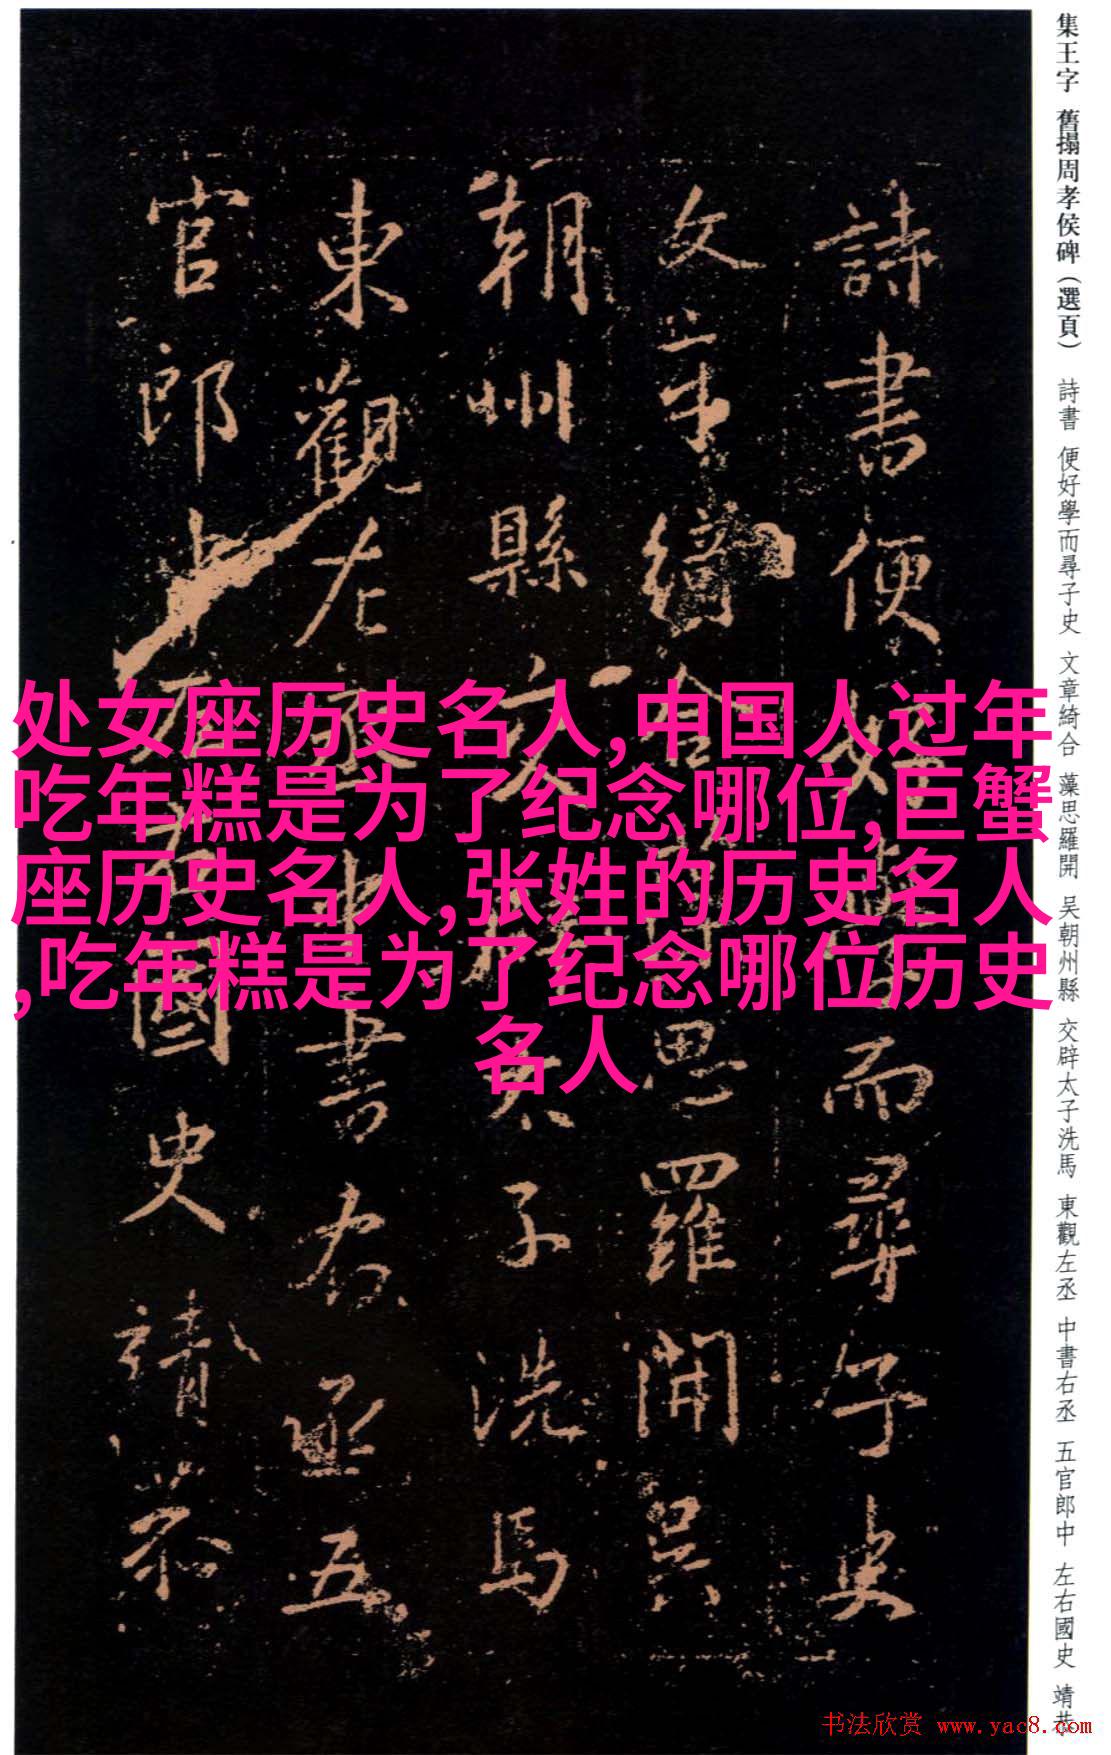 集王字 舊搨周孝侯碑(選頁) 詩書 便好學而尋子史 文章綺合 藻思羅開 吴朝州縣 交辟太子洗馬 東觀左丞 中書右丞 五官郎中 左右國史 靖恭
詩書便好學而尋子史
文章綺合藻思羅開吴
朝州縣交辟太子洗馬
東觀左丞中書右丞五
官郎中左右國史靖恭
处女座历史名人,中国人过年
吃年糕是为了纪念哪位,巨蟹
座历史名人,张姓的历史名人
,吃年糕是为了纪念哪位历史
名人
书法欣赏 www.yac8.com